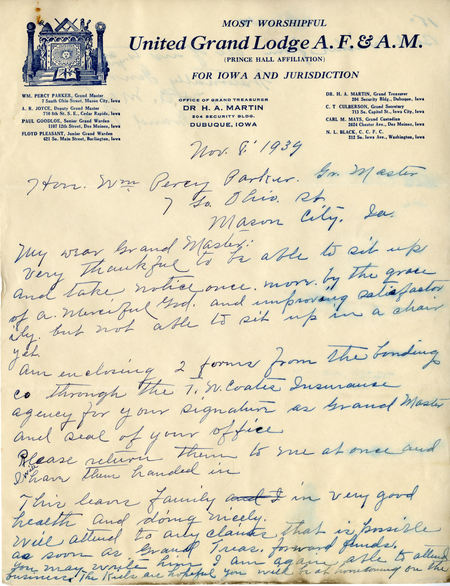 MOST WORSHIPFUL
United Grand Lodge A. F. & A. M.
(PRINCE HALL AFFILIATION)
FOR IOWA AND JURISDICTION
WM. PERCY PARKER, Grand Master
7 South Ohio Street, Mason City, Iowa
A. R. JOYCE, Deputy Grand Master
710 8th St. S. E., Cedar Rapids, Iowa
PAUL GOODLOE, Senior Grand Warden
1107 12th Street, Des Moines, Iowa
FLOYD PLEASANT, Junior Grand Warden
621 So. Main Street, Burlington, Iowa
OFFICE OF GRAND TREASURER
DR H. A. MARTIN
204 SECURITY BLDG.
DUBUQUE, IOWA
DR. H. A. MARTIN, Grand Treasurer
204 Security Bldg., Dubuque, Iowa
C. T. CULBERSON, Grand Secretary
713 So. Capitol St., Iowa City, Iowa
CARL M. MAYS, Grand Custodian
Chester Ave., Des Moines, Iowa
N. L. BLACK, C. C. F. C.
So. Iowa Ave., Washington, Iowa
Nov. 8' 1939
Hon. Wm Percy Parker. Gr. Master
7 So. Ohio. St.
Mason City. Ia.
My dear Grand Master:
Very thankful to be able to sit up
and take notice once. more. by the grace
of a Merciful God. and improving satisfactor
ily. but not able to sit up in a chair
yet.
Am enclosing 2 forms from the bonding
co through the T. W. Coates Insurance
agency for your signature as Grand Master
and seal of your office
Please return them to me at once and
I have them handed in
This leavs family and I in very good
health and doing nicely.
Will attend to any claims that is possible
as soon as Grand Treas. forward funds.
You may write him I am again able to attend
business. The Kids are hopeful you will be at homecoming on the